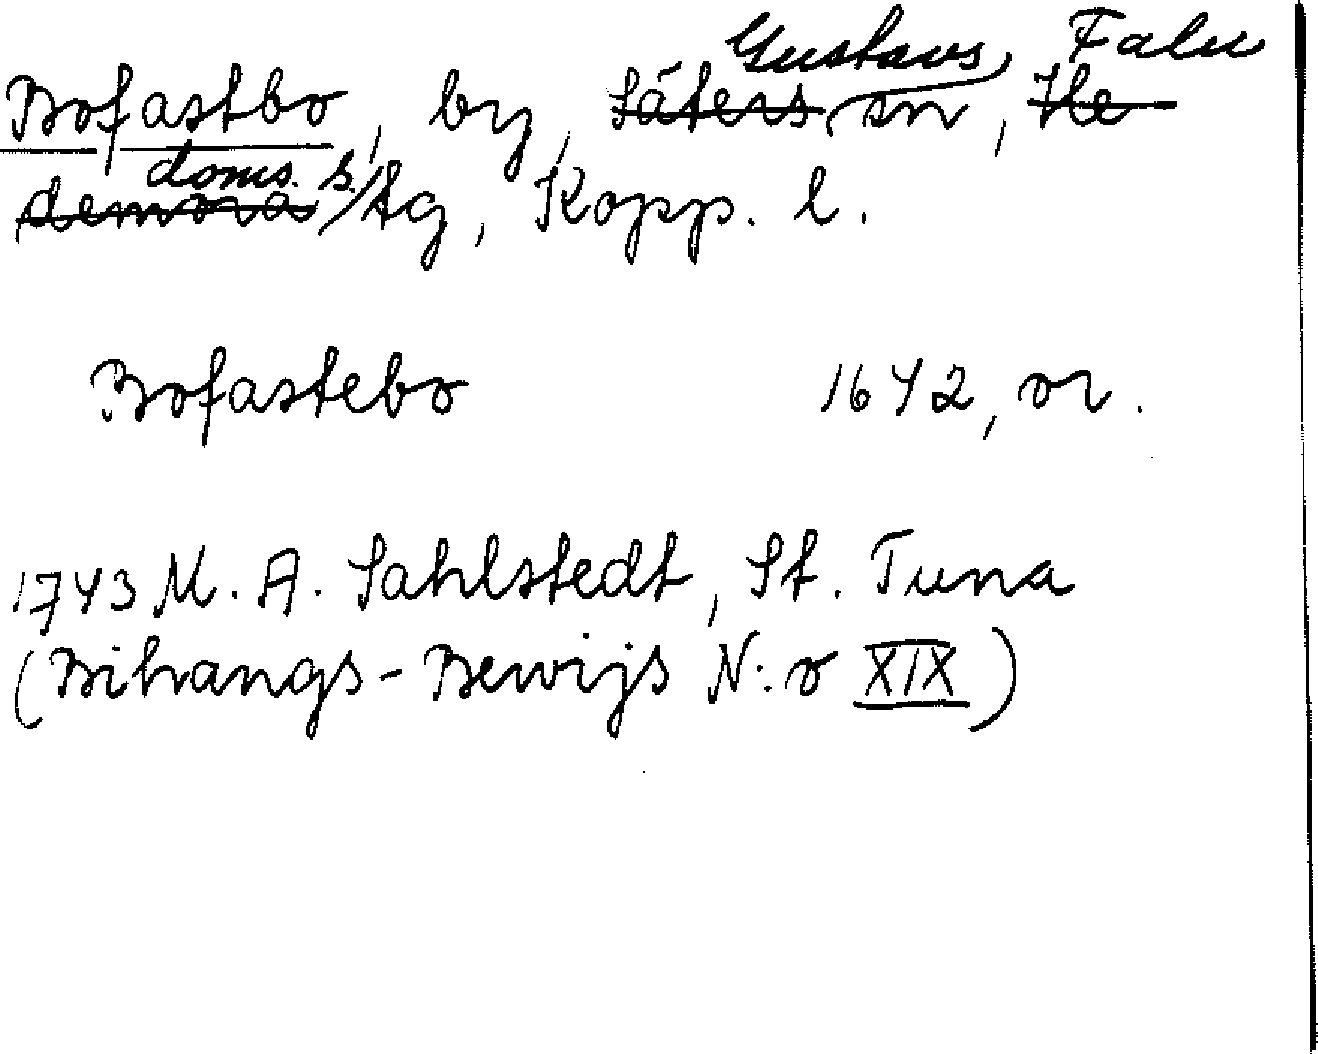 Gustavs, Falu
Bofastbo, by, Säters sn, He-
doms. s.
demora tg, Kopp. l.
Bofastebo 1642, or.
1743 M. A. Sahlstedt, St. Tuna
(Bihangs-Bewijs N:o XIX)